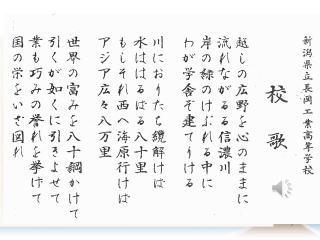 新潟県立長岡工業高等学校
校歌
越しの広野を心のままに
流れながるる信濃川
岸の緑のけぶれる中に
わが学舎ぞ建てりける
川におりたち鏡解けば
水ははるばる八十里
もしそれ西へ海原行けば
アジア広々八万里
世界の富みを八十綱かけて
引くが如くに引きよせて
業も巧みの誉れを挙げて
国の栄をいざ図れ